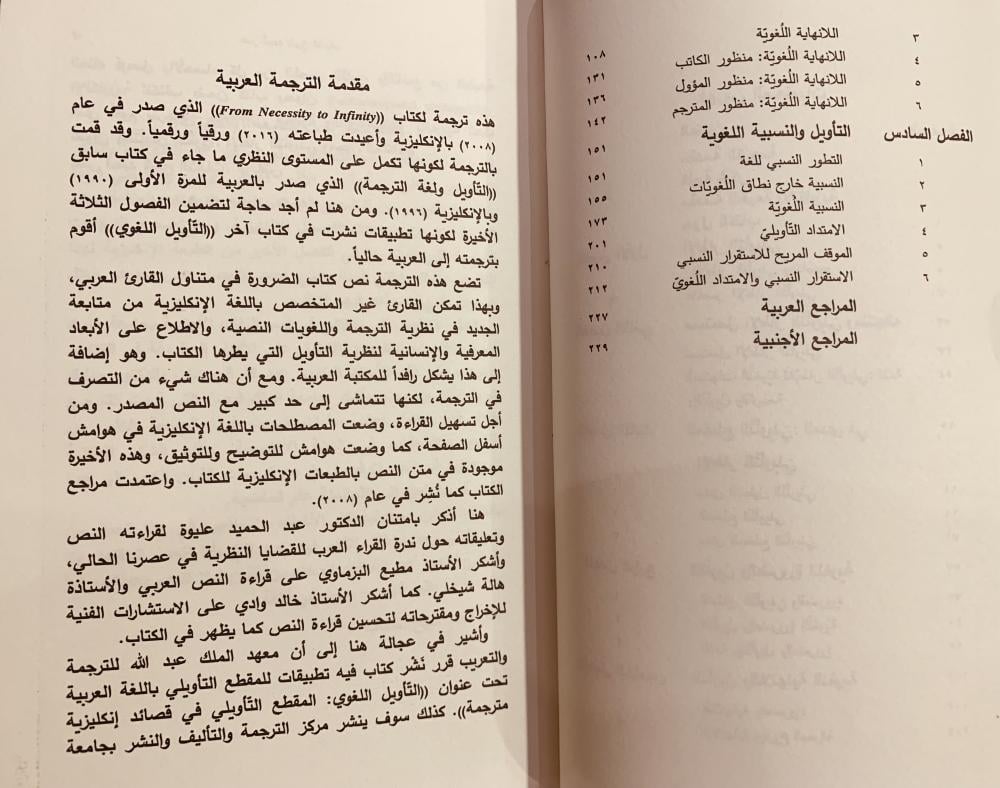 ٣ اللانهاية اللُغويّة ١٠٨
٤ اللانهاية اللُغويّة: منظور الكاتب ١٣١
٥ اللانهاية اللُغويّة: منظور المؤول ١٣٦
٦ اللانهاية اللُغويّة: منظور المترجم ١٤٢
الفصل السادس التأويل والنسبية اللغوية ١٥١
١ التطور النسبي للغة ١٥١
٢ النسبية خارج نطاق اللُغويّات ١٥٥
٣ النسبية اللُغويّة ١٧٣
٤ الامتداد التّأويليّ ٢٠١
٥ الموقف المريح للاستقرار النسبي ٢١٠
٦ الاستقرار النسبي والامتداد اللُغويّ ٢١٢
المراجع العربية ٢٢٧
المراجع الأجنبية ٢٢٩
مقدمة الترجمة العربية
هذه ترجمة لكتاب ((From Necessity to Infinity)) الذي صدر في عام
(٢٠٠٨) بالإنكليزية وأعيدت طباعته (٢٠١٦) ورقياً ورقمياً. وقد قمت
بالترجمة لكونها تكمل على المستوى النظري ما جاء في كتاب سابق
((التأويل ولغة الترجمة)) الذي صدر بالعربية للمرة الأولى (١٩٩٠)
وبالإنكليزية (١٩٩٦). ومن هنا لم أجد حاجة لتضمين الفصول الثلاثة
الأخيرة لكونها تطبيقات نشرت في كتاب آخر ((التّأويل اللغوي)) أقوم
بترجمته إلى العربية حالياً.
تضع هذه الترجمة نص كتاب الضرورة في متناول القارئ العربي،
وبهذا تمكن القارئ غير المتخصص باللغة الإنكليزية من متابعة
الجديد في نظرية الترجمة واللغويات النصية، والاطلاع على الأبعاد
المعرفية والإنسانية لنظرية التأويل التي يطرها الكتاب. وهو إضافة
إلى هذا يشكل رافداً للمكتبة العربية. ومع أن هناك شيء من التصرف
في الترجمة، لكنها تتماشى إلى حد كبير مع النص المصدر. ومن
أجل تسهيل القراءة، وضعت المصطلحات باللغة الإنكليزية في هوامش
أسفل الصفحة، كما وضعت هوامش للتوضيح وللتوثيق، وهذه الأخيرة
موجودة في متن النص بالطبعات الإنكليزية للكتاب. واعتمدت مراجع
الكتاب كما نُشِر في عام (٢٠٠٨).
هنا أذكر بامتنان الدكتور عبد الحميد عليوة لقراءته النص
وتعليقاته حول ندرة القراء العرب للقضايا النظرية في عصرنا الحالي،
وأشكر الأستاذ مطيع البزماوي على قراءة النص العربي والأستاذة
هالة شيخلي. كما أشكر الأستاذ خالد وادي على الاستشارات الفنية
للإخراج ومقترحاته لتحسين قراءة النص كما يظهر في الكتاب.
وأشير في عجالة هنا إلى أن معهد الملك عبد الله للترجمة
والتعريب قرر نَشْر كتاب فيه تطبيقات للمقطع التأويلي باللغة العربية
تحت عنوان ((التّأويل اللغوي: المقطع التّأويلي في قصائد إنكليزية
مترجمة)). كذلك سوف ينشر مركز الترجمة والتأليف والنشر بجامعة